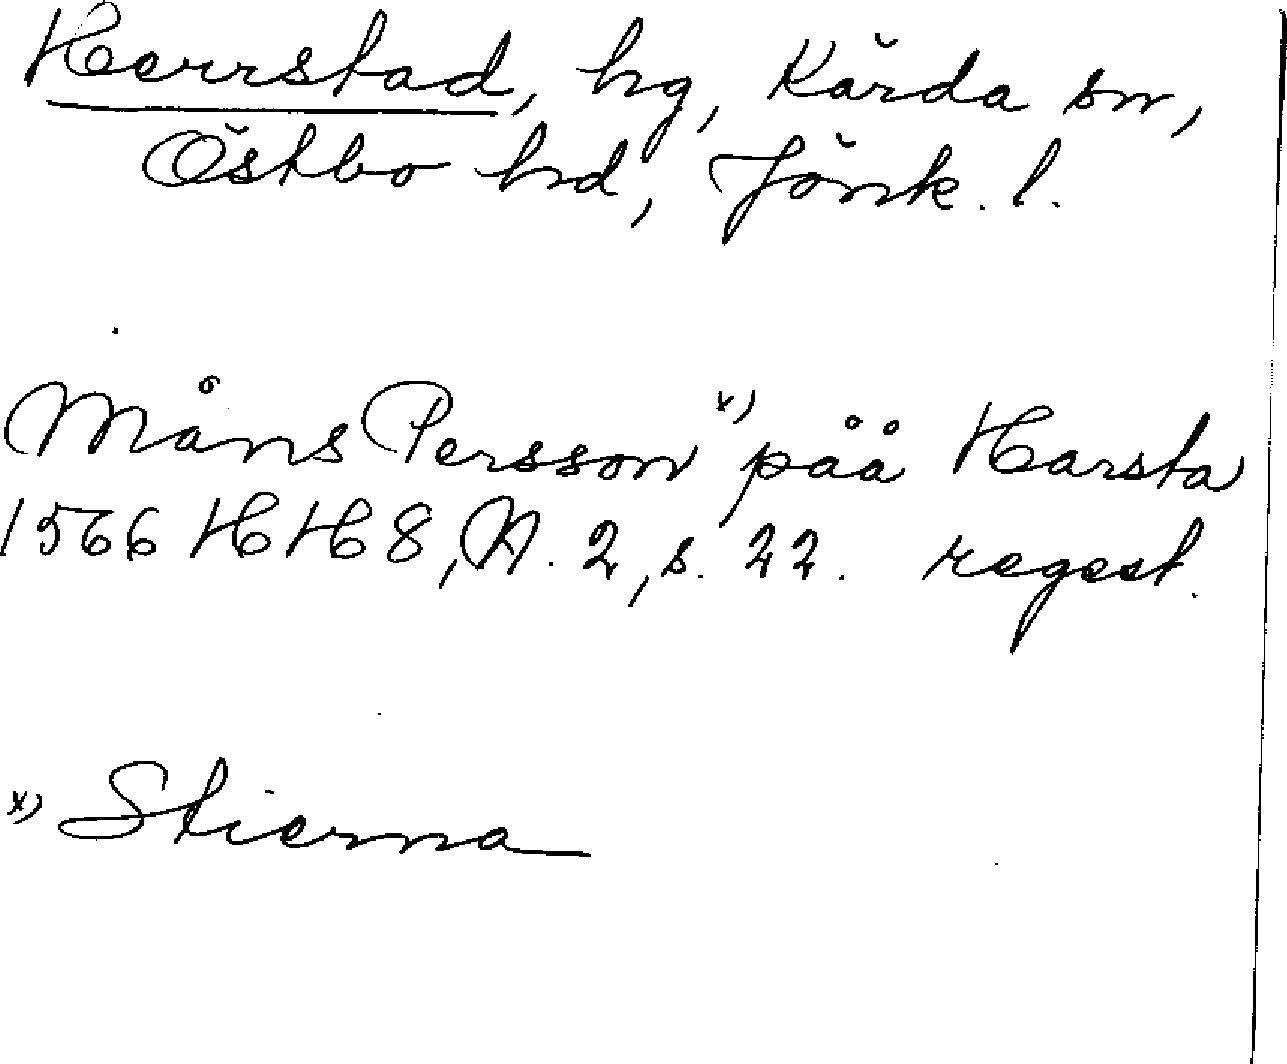 Herrstad, hg, Kärda sn,
Östbo hd, Jönk. l.
Måns Persson x) påå Harsta
1566 HH 8, N. 2, s. 22. regest.
x) Stierna